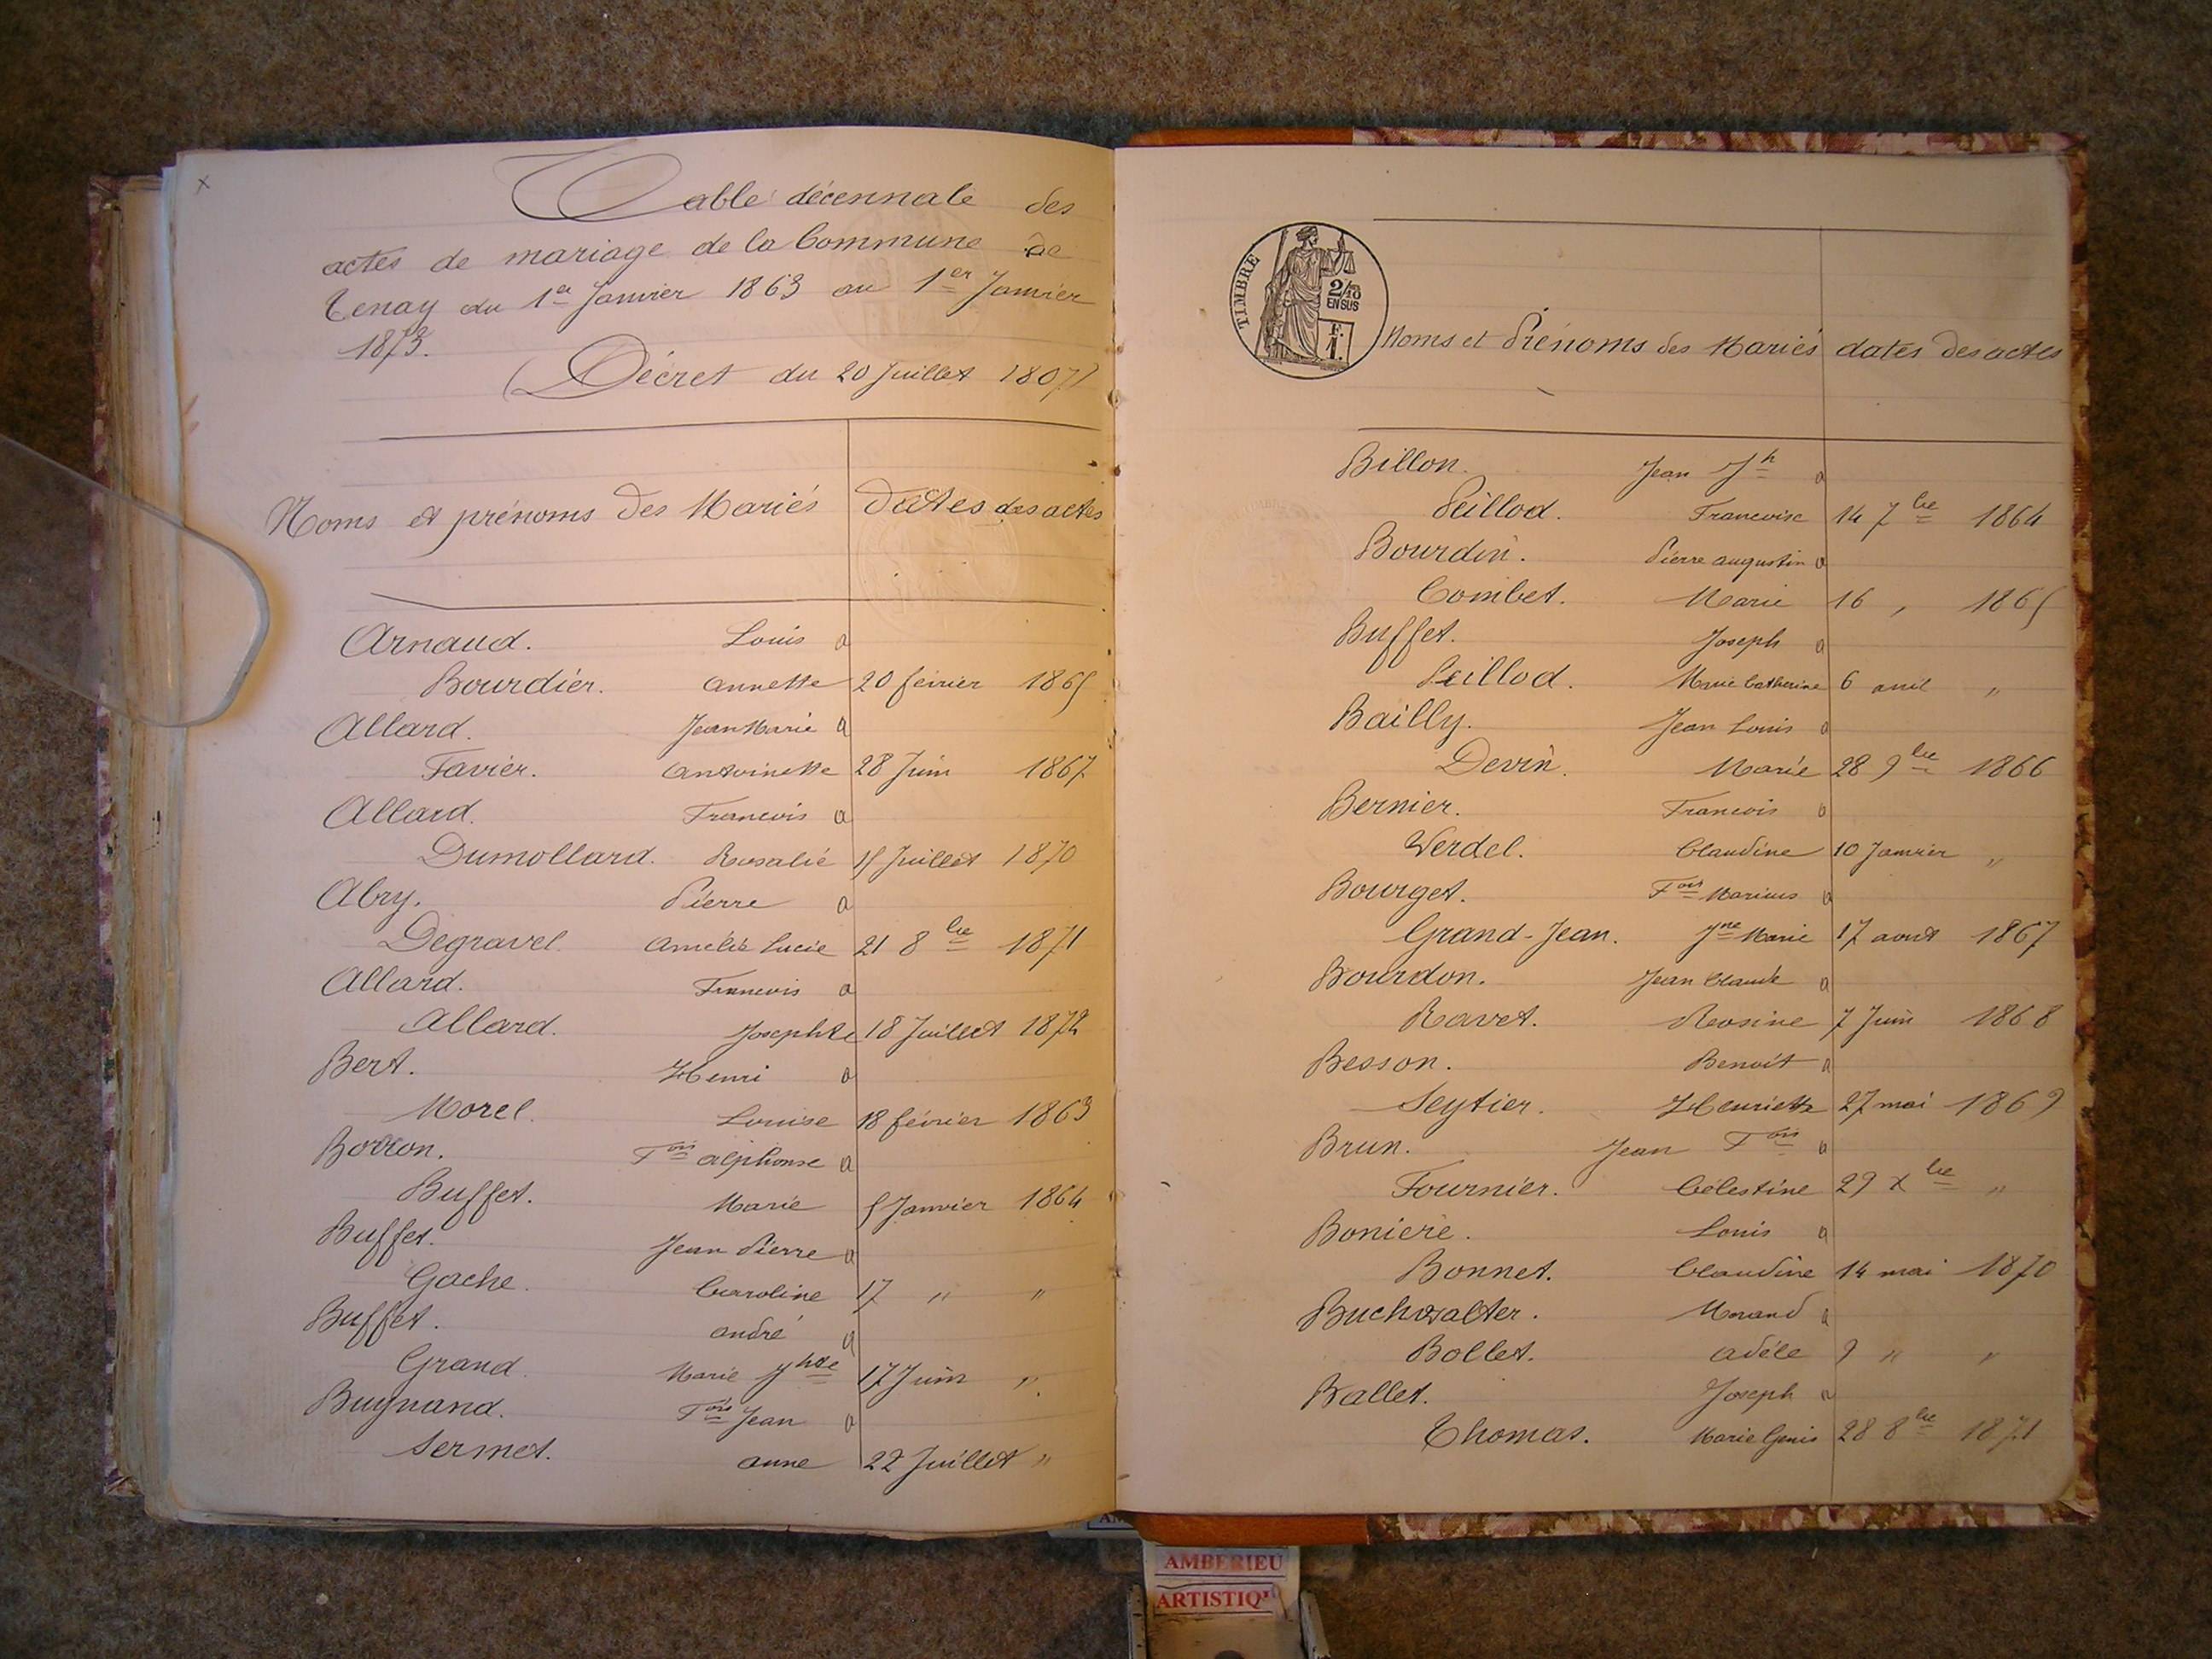 Table décennale des
actes de mariage de la Commune de
Tenay du 1er Janvier 1863 au 1er Janvier
1873.
(Décret du 20 Juillet 1807)
Noms et prénoms des Mariés Dates des actes
Arnaud. Louis a
Bourdier. Annette 20 février 1865
Allard. Jean Marie a
Favier. Antoinette 28 Juin 1867
Allard. Francois a
Dumollard. Rosalie 15 Juillet 1870
Abry. Pierre a
Degravel. Amélie Lucie 21 8bre 1871
Allard. Francois a
Allard. Josephte 18 Juillet 1872
Bert. Henri a
Morel. Louise 18 février 1863
Borron. Fois alphonse a
Buffet. Marie 5 Janvier 1864
Buffet. Jean Pierre a
Gache. Caroline 17 " "
Buffet. andré a
Grand. Marie Jhte 17 Juin "
Buynand. Fois Jean a
Sermet. anne 22 Juillet "
TIMBRE
2/10
EN SUS
F.
1.
Noms et Prénoms des Mariés dates des actes
Billon. Jean Jh a
Peillod. Francoise 14 7bre 1864
Bourdin. Pierre augustin a
Combet. Marie 16 , 1865
Buffet. Joseph a
Peillod. Marie Catherine 6 avril "
Bailly. Jean Louis a
Devin. Marie 28 9bre 1866
Bernier. Francois a
Verdel. Claudine 10 Janvier "
Bourget. Fois Marius a
Grand-Jean. Jne Marie 17 aout 1867
Bourdon. Jean Claude a
Ravet. Rosine 7 Juin 1868
Besson. Benoit a
Seytier. Henriette 27 mai 1869
Brun. Jean Fois a
Fournier. Célestine 29 Xbre "
Boniere. Louis a
Bonnet. Claudine 14 mai 1870
Buchwalter. Morand a
Bollet. adèle 9 " "
Ballet. Joseph a
Thomas. Marie 28 8bre 1871
AMBERIEU
ARTISTIQ